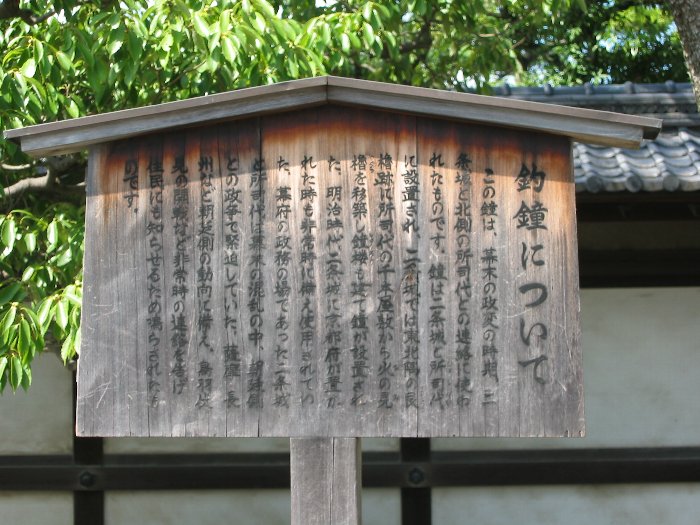 釣鐘について
この鐘は、幕末の政変の時期、二
条城と北側の所司代との連絡に使わ
れたものです。鐘は二条城と所司代
に設置され、二条城では東北隅の艮
櫓跡に所司代の千本屋敷から火の見
櫓を移築し鐘楼も建て鐘が設置され
た。明治時代二条城に京都府が置か
れた時も非常時に備え使用されてい
た。幕府の政務の場であった二条城
と所司代は幕末の混乱の中、朝廷側
との政争で緊迫していた。薩摩、長
州など朝廷側の動向に備え、鳥羽伏
見の開戦など非常時の連絡を告げ
住民にも知らせるため鳴らされたも
のです。